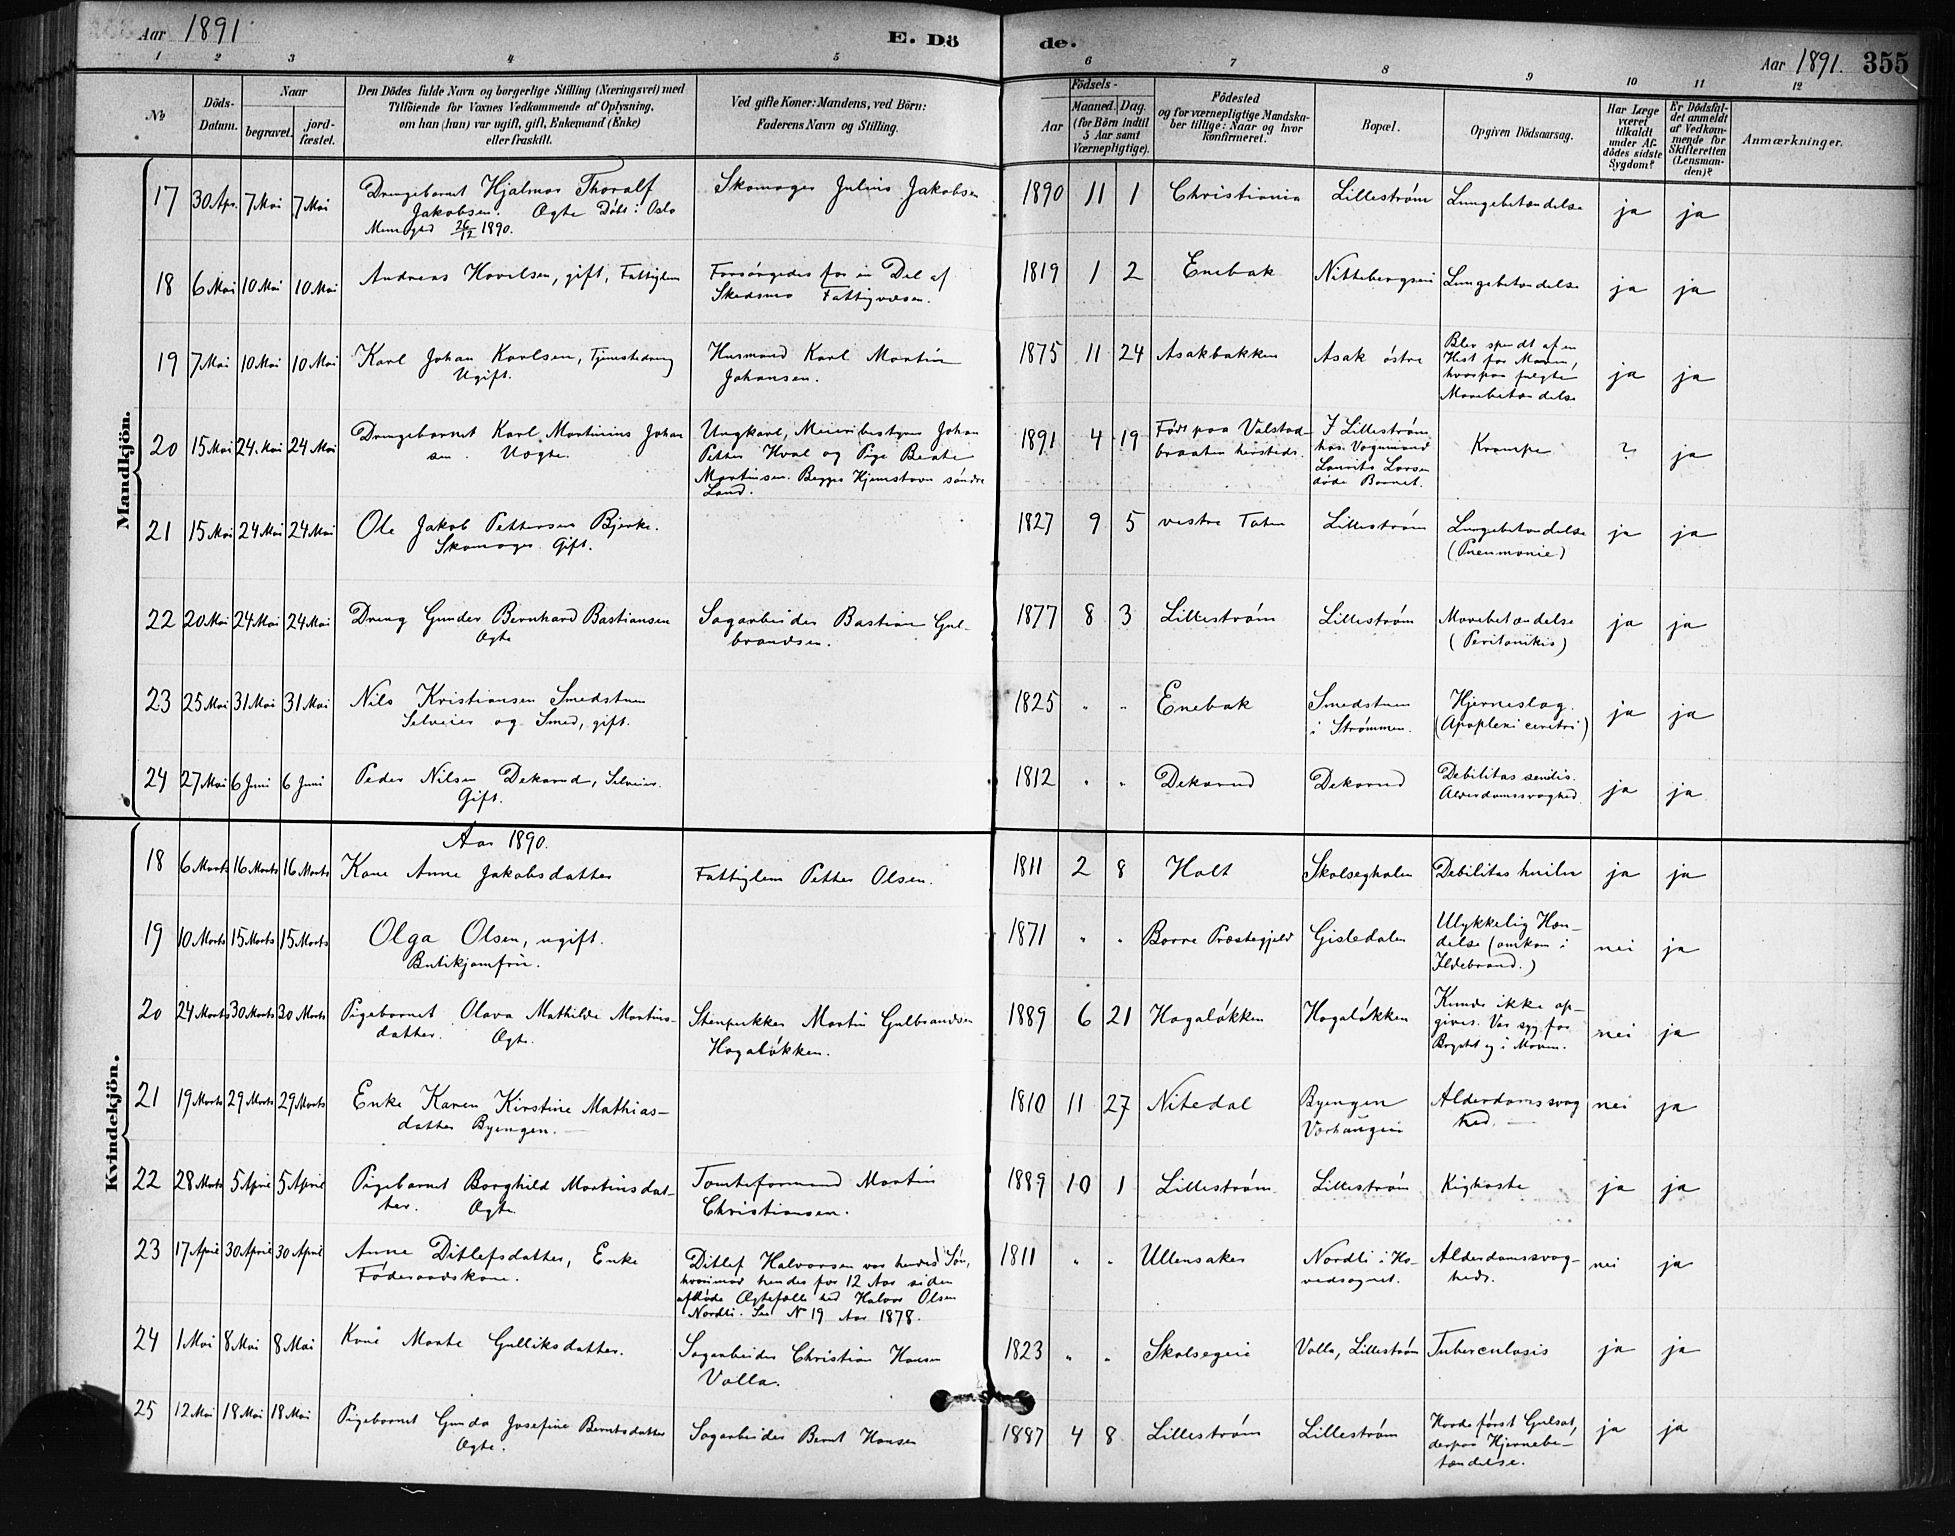 Aar 1891
E. Dö
de.
Aar 1891. 355
1 2 3 4 5 6 7 8 9 10 11 12
No
Döds-Datum.
Naar
begravet.
jord-fæstet.
Den Dödes fulde Navn og borgerlige Stilling (Næringsvei) med
Tilföiende for Voxnes Vedkommende af Oplysning,
om han (hun) var ugift, gift, Enkemand (Enke)
eller fraskilt.
Ved gifte Koner: Mandens, ved Börn:
Faderens Navn og Stilling.
Födsels-
Aar
Maaned. Dag.
(for Börn indtil
5 Aar samt
Værnepligtige).
Födested
og for værnepligtige Mandska-
ber tillige: Naar og hvor
konfirmeret.
Bopæl.
Opgiven Dödsaarsag.
Har Læge
været
tilkaldt
under Af-
dödes sidste
Sygdom?
Er Dödsfal-
det anmeldt
af Vedkom-
mende for
Skifteretten
(Lensman-
den)?
Anmærkninger.
Mandkjön.
17 30 Apr. 7 Mai 7 Mai Drengebarnet Hjalmar Thoralf Skomager Julius Jakobsen 1890 11 1 Christiania Lillestrøm Lungebetændelse ja ja
Jakobsen. Ægte Døbt i Oslo
Menighed 26/12 1890.
18 6 Mai 10 Mai 10 Mai Andreas Hovelsen, gift, Fattiglem Forsørgedes for en Del af 1819 1 2 Enebak Nittebergseie Lungebetændelse ja ja
Skedsmo Fattigvæsen.
19 7 Mai 10 Mai 10 Mai Karl Johan Karlsen, Tjenestedreng Husmand Karl Martin 1875 11 24 Asakbakken Asak østre Blev spændt af en ja ja
Ugift. Johansen. Hest for Maven,
hvorpaa fulgte
Mavebetændelse
20 15 Mai 24. Mai 24 Mai Drengebarnet Karl Martinius Johan Ungkarl, Meieribestyrer Johan 1891 4 19 Født paa Valstad- I Lillestrøm Krampe ? ja
sen. Uægte. Petter Hval og Pige Beate braaten hersteds. hos Vognmand
Martinsen. Begges Hjemstavn søndre Laurits Larsen
Land. døde Barnet.
21 15 Mai 24 Mai 24 Mai Ole Jakob Pettersen Bjerke. 1827 9 5 vestre Toten Lillestrøm Lungebetændelse ja ja
Skomager. Gift. (Pneumonie)
22 20 Mai 24 Mai 24 Mai Dreng Gunder Bernhard Bastiansen Sagarbeider Bastian Gul- 1877 8 3 Lillestrøm Lillestrøm Mavebetændelse ja ja
Ægte brandsen. (Peritonikis)
23 25 Mai 31 Mai 31 Mai Nils Kristiansen Smedstuen 1825 " " Enebak Smedstuen Hjerneslag. ja ja
Selveier og Smed, gift. i Strømmen. (Apoplexi cerebri)
24 27 Mai 6 Juni 6 Juni Peder Nilsen Dekerud, Selveier. 1812 " " Dekerud Dekerud Debilitas senilis. ja ja
Gift. Alderdomssvaghed.
Kvindekjön.
Aar 1890.
18 6 Marts 16 Marts 16 Marts Kone Anne Jakobsdatter Fattiglem Petter Olsen. 1811 2 8 Holt Skolseghalen Debilitas ja ja
19 10 Marts 15 Marts 15 Marts Olga Olsen, ugift. 1871 " " Borre Præstegjeld Gisledalen Ulykkelig Hæn- nei ja
Butikjomfru. delse (omkom i
Ildebrand.)
20 24 Marts 30 Marts 30 Marts Pigebarnet Olava Mathilde Martins- Stenpukker Martin Gulbrandsen 1889 6 21 Hagaløkken Hagaløkken Kunde ikke op- nei ja
datter. Ægte. Hagaløkken. gives. Var syg for
Brystet og i Maven.
21 19 Marts 29 Marts 29 Marts Enke Karen Kirstine Mathias- 1810 11 27 Nitedal Byengen Alderdomssvag nei ja
datter Byengen. Vorhaugeie hed.
22 28 Marts 5 April 5 April Pigebarnet Borghild Martinsdat- Tomteformand Martin 1889 10 1 Lillestrøm. Lillestrøm Kighoste ja ja
ter. Ægte. Christiansen.
23 17 April 30 April 30 April Anne Ditlefsdatter, Enke Ditlef Halvorsen var hendes Søn, 1811 " " Ullensaker Nordli i Ho- Alderdomssvag- nei ja
Føderaadskone. hvorimod hendes for 12 Aar siden vedsognet. hed.
afdøde Ægtefælle hed Halvor Olsen
Nordli. Se N 19 Aar 1878.
24 1 Mai 8 Mai 8 Mai Kone Marte Gulliksdatter. Sagarbeider Christian Hansen 1823 " " Skolsegeie Volla, Lillestrøm Tuberculosis ja ja
Volla.
25 12 Mai 18 Mai 18 Mai Pigebarnet Gunda Josefine Berntsdatter Sagarbeider Bernt Hansen 1887 4 8 Lillestrøm Lillestrøm Havde først Gulsot, ja ja
Ægte. derpaa Hjernebe-
tændelse.